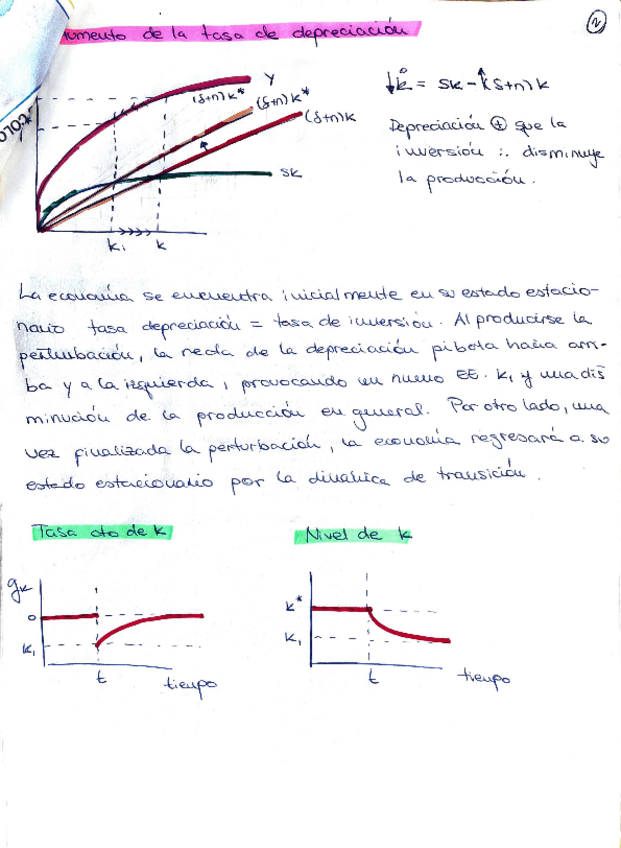 umento de la tasa de depreciación
2
Y
(δ+n)k*
(δ+n)k*
(δ+n)k
sk
k₁
k
↓k̊ = sk - ↑(δ+n)k
Depreciación ⊕ que la
inversión ∴ disminuye
la producción.
La economía se encuentra inicialmente en su estado estacio-
nario tasa depreciación = tasa de inversión. Al producirse la
perturbación, la recta de la depreciación pibota hacia arri-
ba y a la izquierda, provocando un nuevo EE. k₁ y una dis
minución de la producción en general. Por otro lado, una
vez finalizada la perturbación, la economía regresará a su
estado estacionario por la dinámica de transición.
Tasa cto de k
Nivel de k
gk
0
k₁
t
tiempo
k*
k₁
t
tiempo